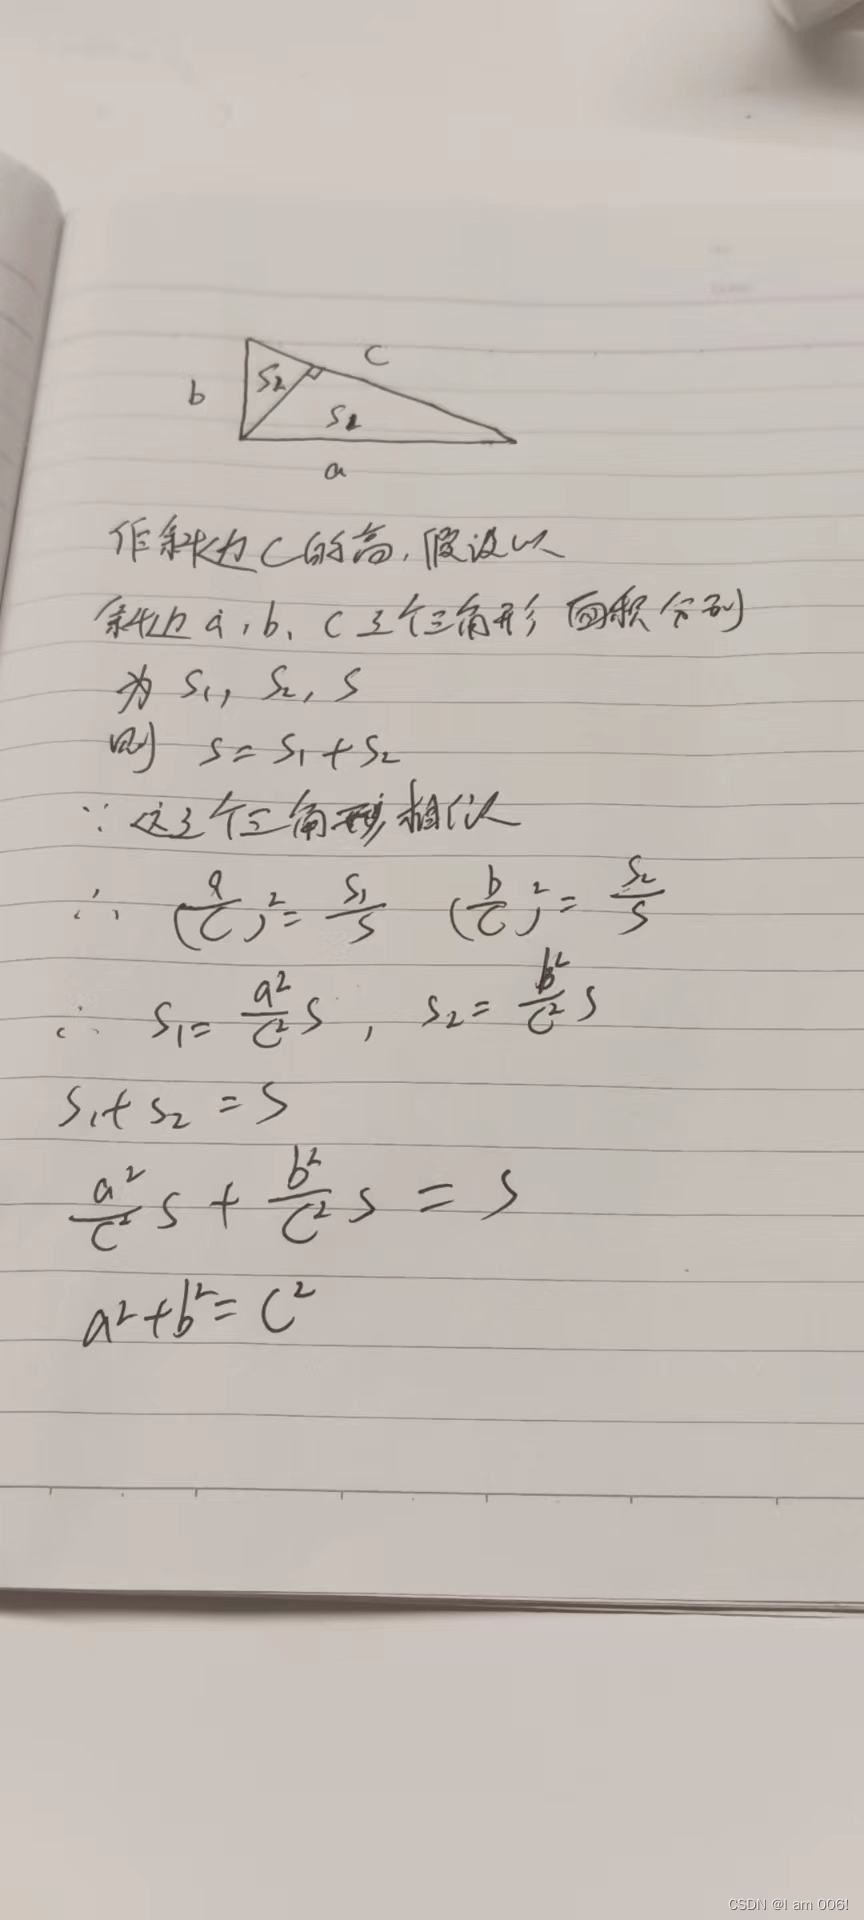 c
b
S₂
S₁
a
作斜边C的高,假设以
斜边a,b、c 3个三角形 面积分别
为 S₁, S₂, S
则 S=S₁+S₂
∵ 这3个三角形相似
∴ (a/c)²=S₁/S (b/c)²=S₂/S
∴ S₁=a²/c² S, S₂=b²/c² S
S₁+S₂=S
a²/c² S + b²/c² S = S
a²+b²=c²
CSDN @I am 006!